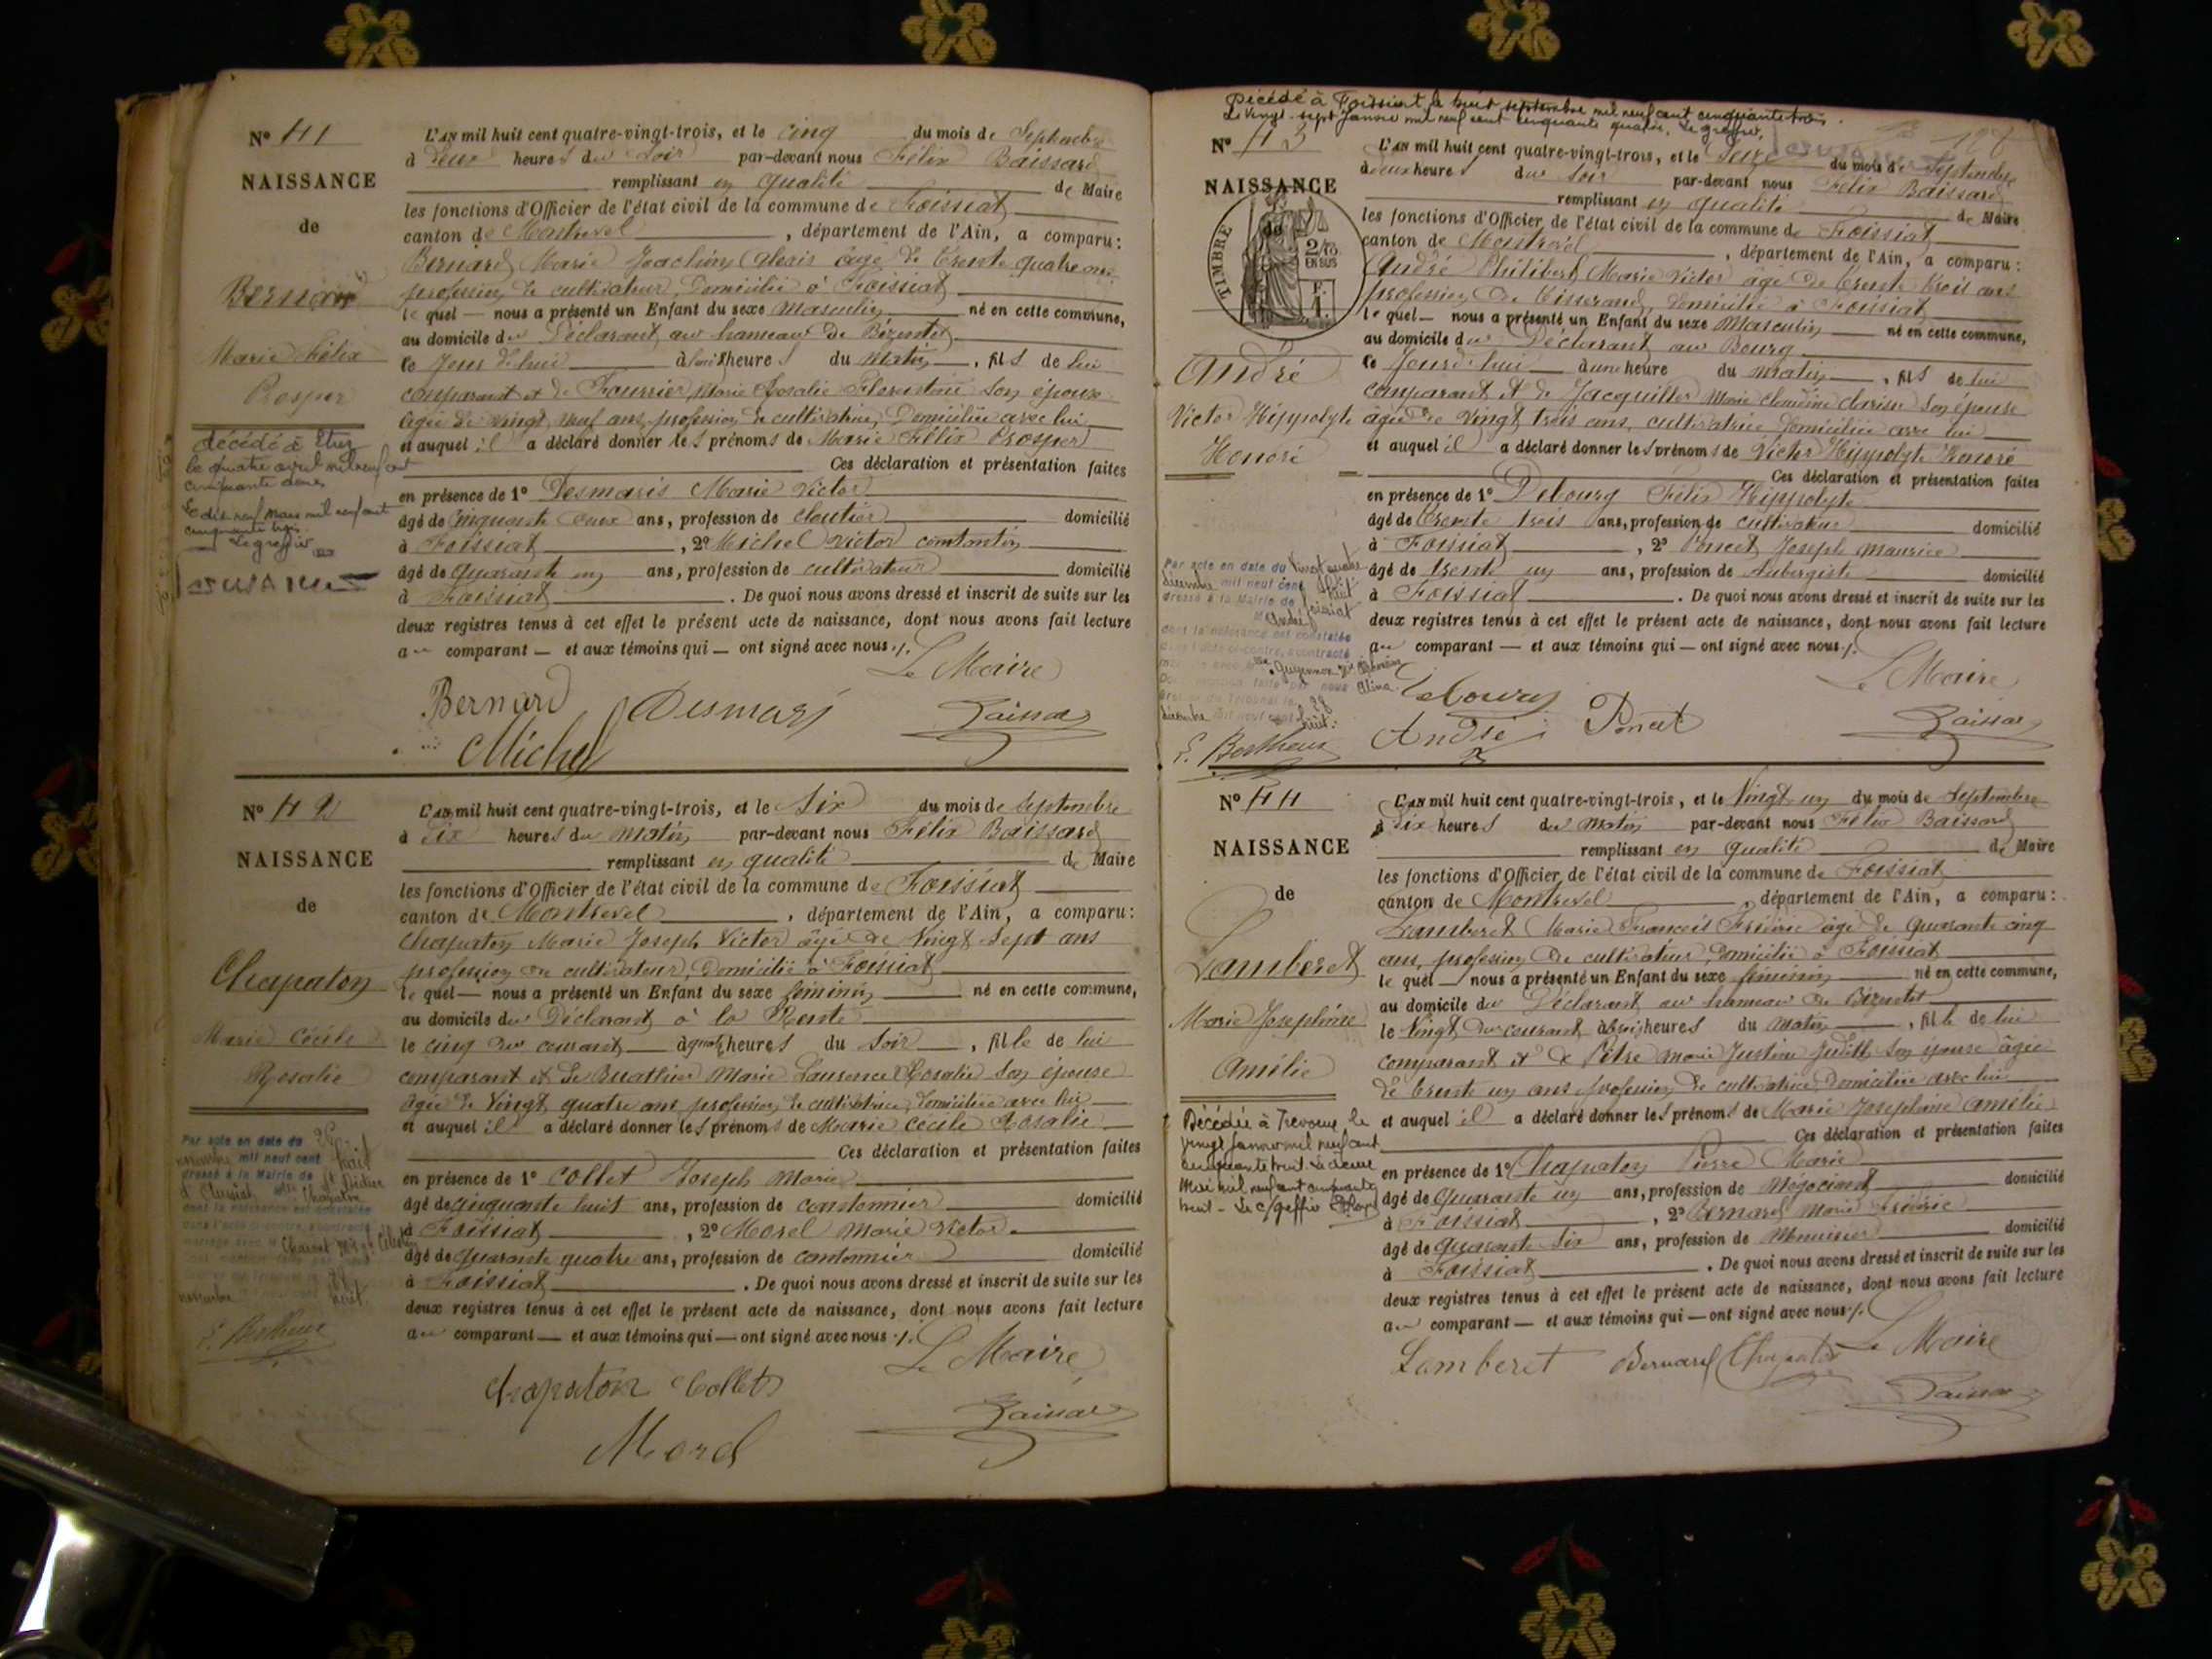 N° 41
NAISSANCE
de
Bernard
Marie Félix
Prosper
décédé à Etrez
le quatre avril mil neuf cent
cinquante deux
Le dix neuf mars mil neuf cent
cinquante trois
Le greffier
L'AN mil huit cent quatre-vingt-trois, et le cinq du mois de Septembre
à deux heures du soir par-devant nous Félix Baissard
remplissant en qualité de Maire
les fonctions d'Officier de l'état civil de la commune de Foissiat
canton de Montrevel, département de l'Ain, a comparu:
Bernard Marie Joachim Alexis âgé de trente quatre ans
profession de cultivateur, domicilié à Foissiat
le quel — nous a présenté un Enfant du sexe masculin né en cette commune,
au domicile du Déclarant au hameau de Bézentet
ce jourd'hui à huit heures du matin, fils de lui
comparant et de Fournier Marie Rosalie Florentine son épouse
âgée de vingt neuf ans, profession de cultivatrice, domiciliée avec lui
et auquel il a déclaré donner les prénoms de Marie Félix Prosper
Ces déclaration et présentation faites
en présence de 1° Desmaris Marie Victor
âgé de cinquante deux ans, profession de cloutier domicilié
à Foissiat, 2° Michel Victor Constantin
âgé de quarante un ans, profession de cultivateur domicilié
à Foissiat. De quoi nous avons dressé et inscrit de suite sur les
deux registres tenus à cet effet le présent acte de naissance, dont nous avons fait lecture
au comparant — et aux témoins qui — ont signé avec nous ./.
Le Maire
Bernard Desmaris Baissard
Michel
N° 42
NAISSANCE
de
Chapaton
Marie Cécile
Rosalie
Par acte en date du
novembre mil neuf cent huit
dressé à la Mairie de St Didier
d'Aussiat Chapaton
dont la naissance est constatée
dans l'acte ci-contre, a contracté
mariage avec
novembre huit.
E. Bertheux
L'AN mil huit cent quatre-vingt-trois, et le Six du mois de Septembre
à dix heures du matin par-devant nous Félix Baissard
remplissant en qualité de Maire
les fonctions d'Officier de l'état civil de la commune de Foissiat
canton de Montrevel, département de l'Ain, a comparu:
Chapaton Marie Joseph Victor âgé de vingt sept ans
profession de cultivateur, domicilié à Foissiat
le quel — nous a présenté un Enfant du sexe féminin né en cette commune,
au domicile du Déclarant à la
le cinq du courant à quatre heures du soir, fille de lui
comparant et de Buathier Marie Laurence Rosalie son épouse
âgée de vingt quatre ans profession de cultivatrice, domiciliée avec lui
et auquel il a déclaré donner les prénoms de Marie Cécile Rosalie
Ces déclaration et présentation faites
en présence de 1° Collet Joseph Marie
âgé de cinquante huit ans, profession de cordonnier domicilié
à Foissiat, 2° Morel Marie Victor
âgé de quarante quatre ans, profession de cantonnier domicilié
à Foissiat. De quoi nous avons dressé et inscrit de suite sur les
deux registres tenus à cet effet le présent acte de naissance, dont nous avons fait lecture
au comparant — et aux témoins qui — ont signé avec nous ./.
Le Maire
Chapaton Collet
Baissard
Morel
Décédé à Foissiat le huit septembre mil neuf cent cinquante trois.
Le vingt-sept janvier mil neuf cent cinquante quatre, Le greffier,
128
N° 43
NAISSANCE
de
TIMBRE
2/10
EN SUS
F.
1.
André
Victor Hippolyte
Honoré
Par acte en date du vingt quatre
décembre mil neuf cent huit
dressé à la Mairie de Foissiat
André
dont la naissance est constatée
dans l'acte ci-contre, a contracté
mariage avec
Alina
décembre mil neuf cent huit.
E. Bertheux
L'AN mil huit cent quatre-vingt-trois, et le Seize du mois de Septembre
à deux heures du soir par-devant nous Félix Baissard
remplissant en qualité de Maire
les fonctions d'Officier de l'état civil de la commune de Foissiat
canton de Montrevel, département de l'Ain, a comparu:
André Philibert Marie Victor âgé de trente trois ans
profession de tisserand, domicilié à Foissiat
le quel — nous a présenté un Enfant du sexe Masculin né en cette commune,
au domicile du Déclarant au Bourg
ce jourd'hui à une heure du matin, fils de lui
comparant et de Jacquillet Marie Claudine Clarisse son épouse
âgée de vingt trois ans, cultivatrice domiciliée avec lui
et auquel il a déclaré donner les prénoms de Victor Hippolyte Honoré
Ces déclaration et présentation faites
en présence de 1° Debourg Félix Hippolyte
âgé de trente trois ans, profession de cultivateur domicilié
à Foissiat, 2° Poncet Joseph Maurice
âgé de trente un ans, profession de Aubergiste domicilié
à Foissiat. De quoi nous avons dressé et inscrit de suite sur les
deux registres tenus à cet effet le présent acte de naissance, dont nous avons fait lecture
au comparant — et aux témoins qui — ont signé avec nous ./.
Le Maire
Debourg
André Poncet Baissard
N° 44
NAISSANCE
de
Lamberet
Marie Joséphine
Amélie
Décédée à Trevoux le
vingt janvier mil neuf cent
cinquante huit. Le deux
Mai mil neuf cent cinquante
huit - Le c/greffier
L'AN mil huit cent quatre-vingt-trois, et le Vingt un du mois de Septembre
à dix heures du matin par-devant nous Félix Baissard
remplissant en qualité de Maire
les fonctions d'Officier de l'état civil de la commune de Foissiat
canton de Montrevel, département de l'Ain, a comparu:
Lamberet Marie François Frédéric âgé de quarante cinq
ans, profession de cultivateur, domicilié à Foissiat
le quel — nous a présenté un Enfant du sexe féminin né en cette commune,
au domicile du Déclarant au hameau de Bézentet
le vingt du courant à trois heures du matin, fille de lui
comparant et de Pitre Marie Justine Judith son épouse âgée
de trente un ans profession de cultivatrice, domiciliée avec lui
et auquel il a déclaré donner les prénoms de Marie Joséphine Amélie
Ces déclaration et présentation faites
en présence de 1° Chapaton Pierre Marie
âgé de quarante un ans, profession de Négociant domicilié
à Foissiat, 2° Bernard Marie Frédéric
âgé de quarante six ans, profession de Menuisier domicilié
à Foissiat. De quoi nous avons dressé et inscrit de suite sur les
deux registres tenus à cet effet le présent acte de naissance, dont nous avons fait lecture
au comparant — et aux témoins qui — ont signé avec nous ./.
Lamberet Bernard Chapaton Le Maire
Baissard